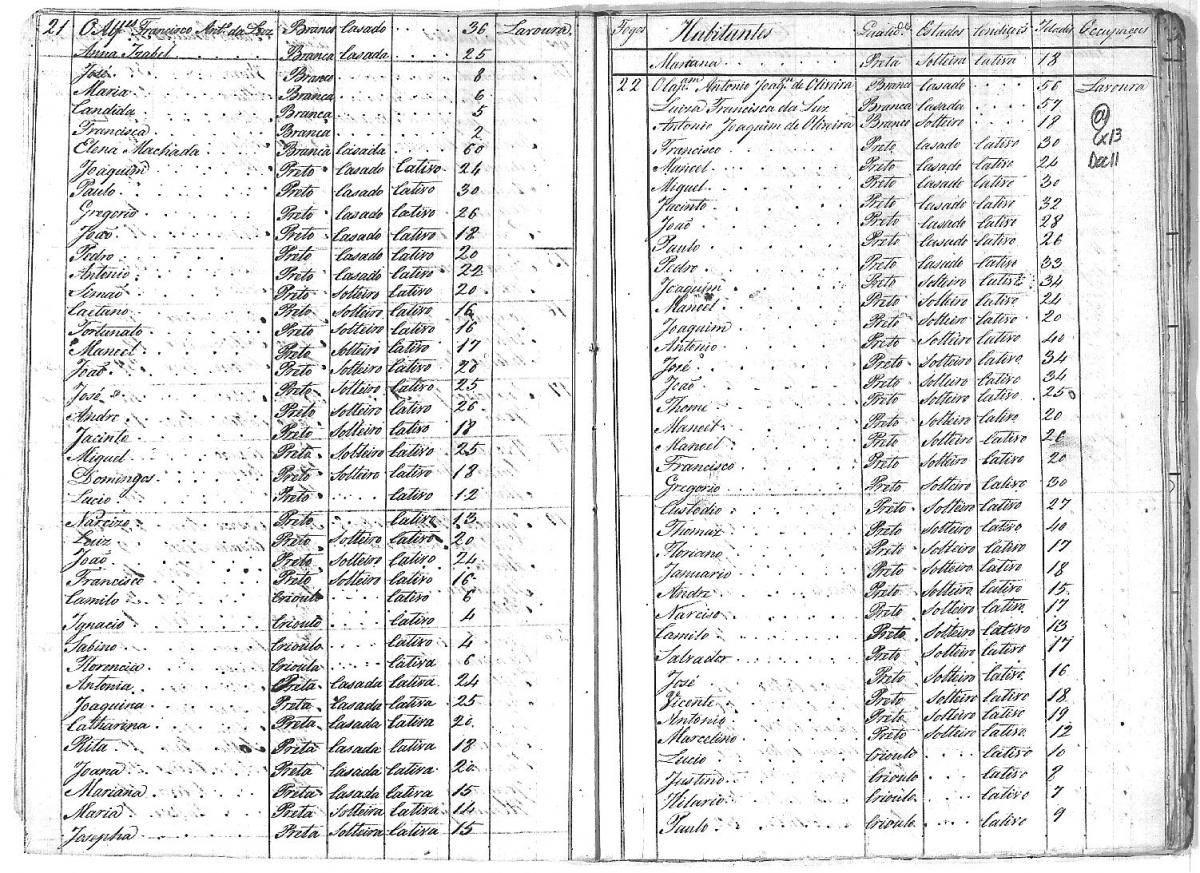 21 O Alf.es Francisco Ant.o da Luz Branco Casado 36 Lavoura
Anna Izabel Branca Casada 25
José Branco 8
Maria Branca 6
Candida Branca 5
Francisca Branca 2
Elena Machada Branca Casada 60
Joaquim Preto Casado Cativo 24
Paulo Preto Casado Cativo 30
Gregorio Preto Casado Cativo 26
João Preto Casado Cativo 18
Pedro Preto Casado Cativo 20
Antonio Preto Casado Cativo 22
Simaõ Preto Solteiro Cativo 20
Caetano Preto Solteiro Cativo 16
Fortunato Preto Solteiro Cativo 16
Manoel Preto Solteiro Cativo 17
João Preto Solteiro Cativo 20
José Preto Solteiro Cativo 25
Andre Preto Solteiro Cativo 26
Jacinto Preto Solteiro Cativo 18
Miguel Preto Solteiro Cativo 25
Domingos Preto Solteiro Cativo 18
Lucio Preto Cativo 12
Narcizo Preto Cativo 13
Luiz Preto Solteiro Cativo 20
João Preto Solteiro Cativo 24
Francisco Preto Solteiro Cativo 16
Camilo Crioulo Cativo 6
Ignacio Crioulo Cativo 4
Sabino Crioulo Cativo 4
Florencia Crioula Cativa 6
Antonia Preta Casada Cativa 24
Joaquina Preta Casada Cativa 25
Catharina Preta Casada Cativa 20
Rita Preta Casada Cativa 18
Joana Preta Casada Cativa 20
Mariana Preta Casada Cativa 15
Maria Preta Solteira Cativa 14
Josepha Preta Solteira Cativa 15
Fogos Habitantes Qualid.e Estados Condições Idades Occupações
Mariana Preta Solteira Cativa 18
22 O Cap.am Antonio Joaq.m de Oliveira Branco Casado 56 Lavoura
Luiza Francisca da Luz Branca Casada 57
Antonio Joaquim de Oliveira Branco Solteiro 18
Francisco Preto Casado Cativo 30
Manoel Preto Casado Cativo 24
Miguel Preto Casado Cativo 30
Jacinto Preto Casado Cativo 32
João Preto Casado Cativo 28
Paulo Preto Casado Cativo 26
Pedro Preto Casado Cativo 33
Joaquim Preto Solteiro Cativo 34
Manoel Preto Solteiro Cativo 24
Joaquim Preto Solteiro Cativo 20
Antonio Preto Solteiro Cativo 40
José Preto Solteiro Cativo 34
João Preto Solteiro Cativo 34
Thome Preto Solteiro Cativo 25
Manoel Preto Solteiro Cativo 20
Manoel Preto Solteiro Cativo 26
Francisco Preto Solteiro Cativo 20
Gregorio Preto Solteiro Cativo 30
Custodio Preto Solteiro Cativo 27
Thomaz Preto Solteiro Cativo 40
Floriano Preto Solteiro Cativo 17
Januario Preto Solteiro Cativo 18
Andre Preto Solteiro Cativo 15
Narciso Preto Solteiro Cativo 17
Camilo Preto Solteiro Cativo 13
Salvador Preto Solteiro Cativo 17
José Preto Solteiro Cativo 16
Vicente Preto Solteiro Cativo 18
Antonio Preto Solteiro Cativo 19
Marcelino Preto Solteiro Cativo 12
Lucio Crioulo Cativo 10
Justino Crioulo Cativo 8
Hilario Crioulo Cativo 7
Paulo Crioulo Cativo 9